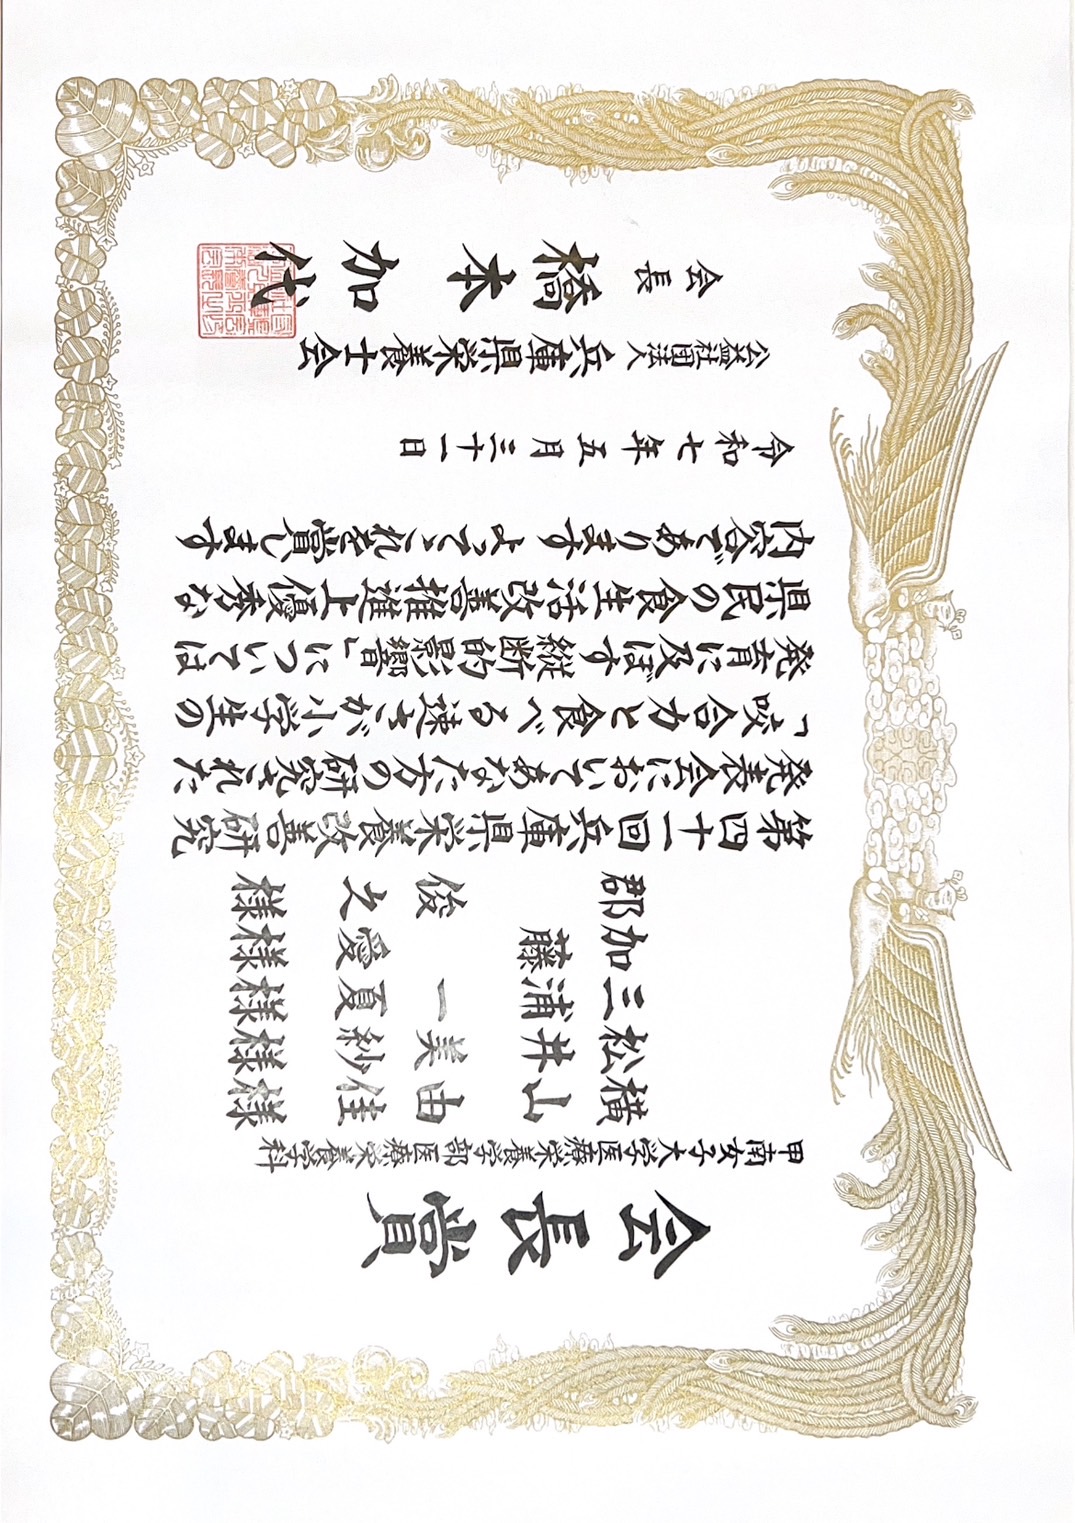 会長賞
甲南女子大学医療栄養学部医療栄養学科
横山由佳様
松井美紗様
三浦一夏様
加藤 愛様
郡 俊之様
第四十一回兵庫県栄養改善研究
発表会においてあなた方の研究された
「咬合力と食べる速さが小学生の
発育に及ぼす縦断的影響」については
県民の食生活改善推進上優秀な
内容であります よってこれを賞します
令和七年五月三十一日
公益社団法人兵庫県栄養士会
会長 橋本加代